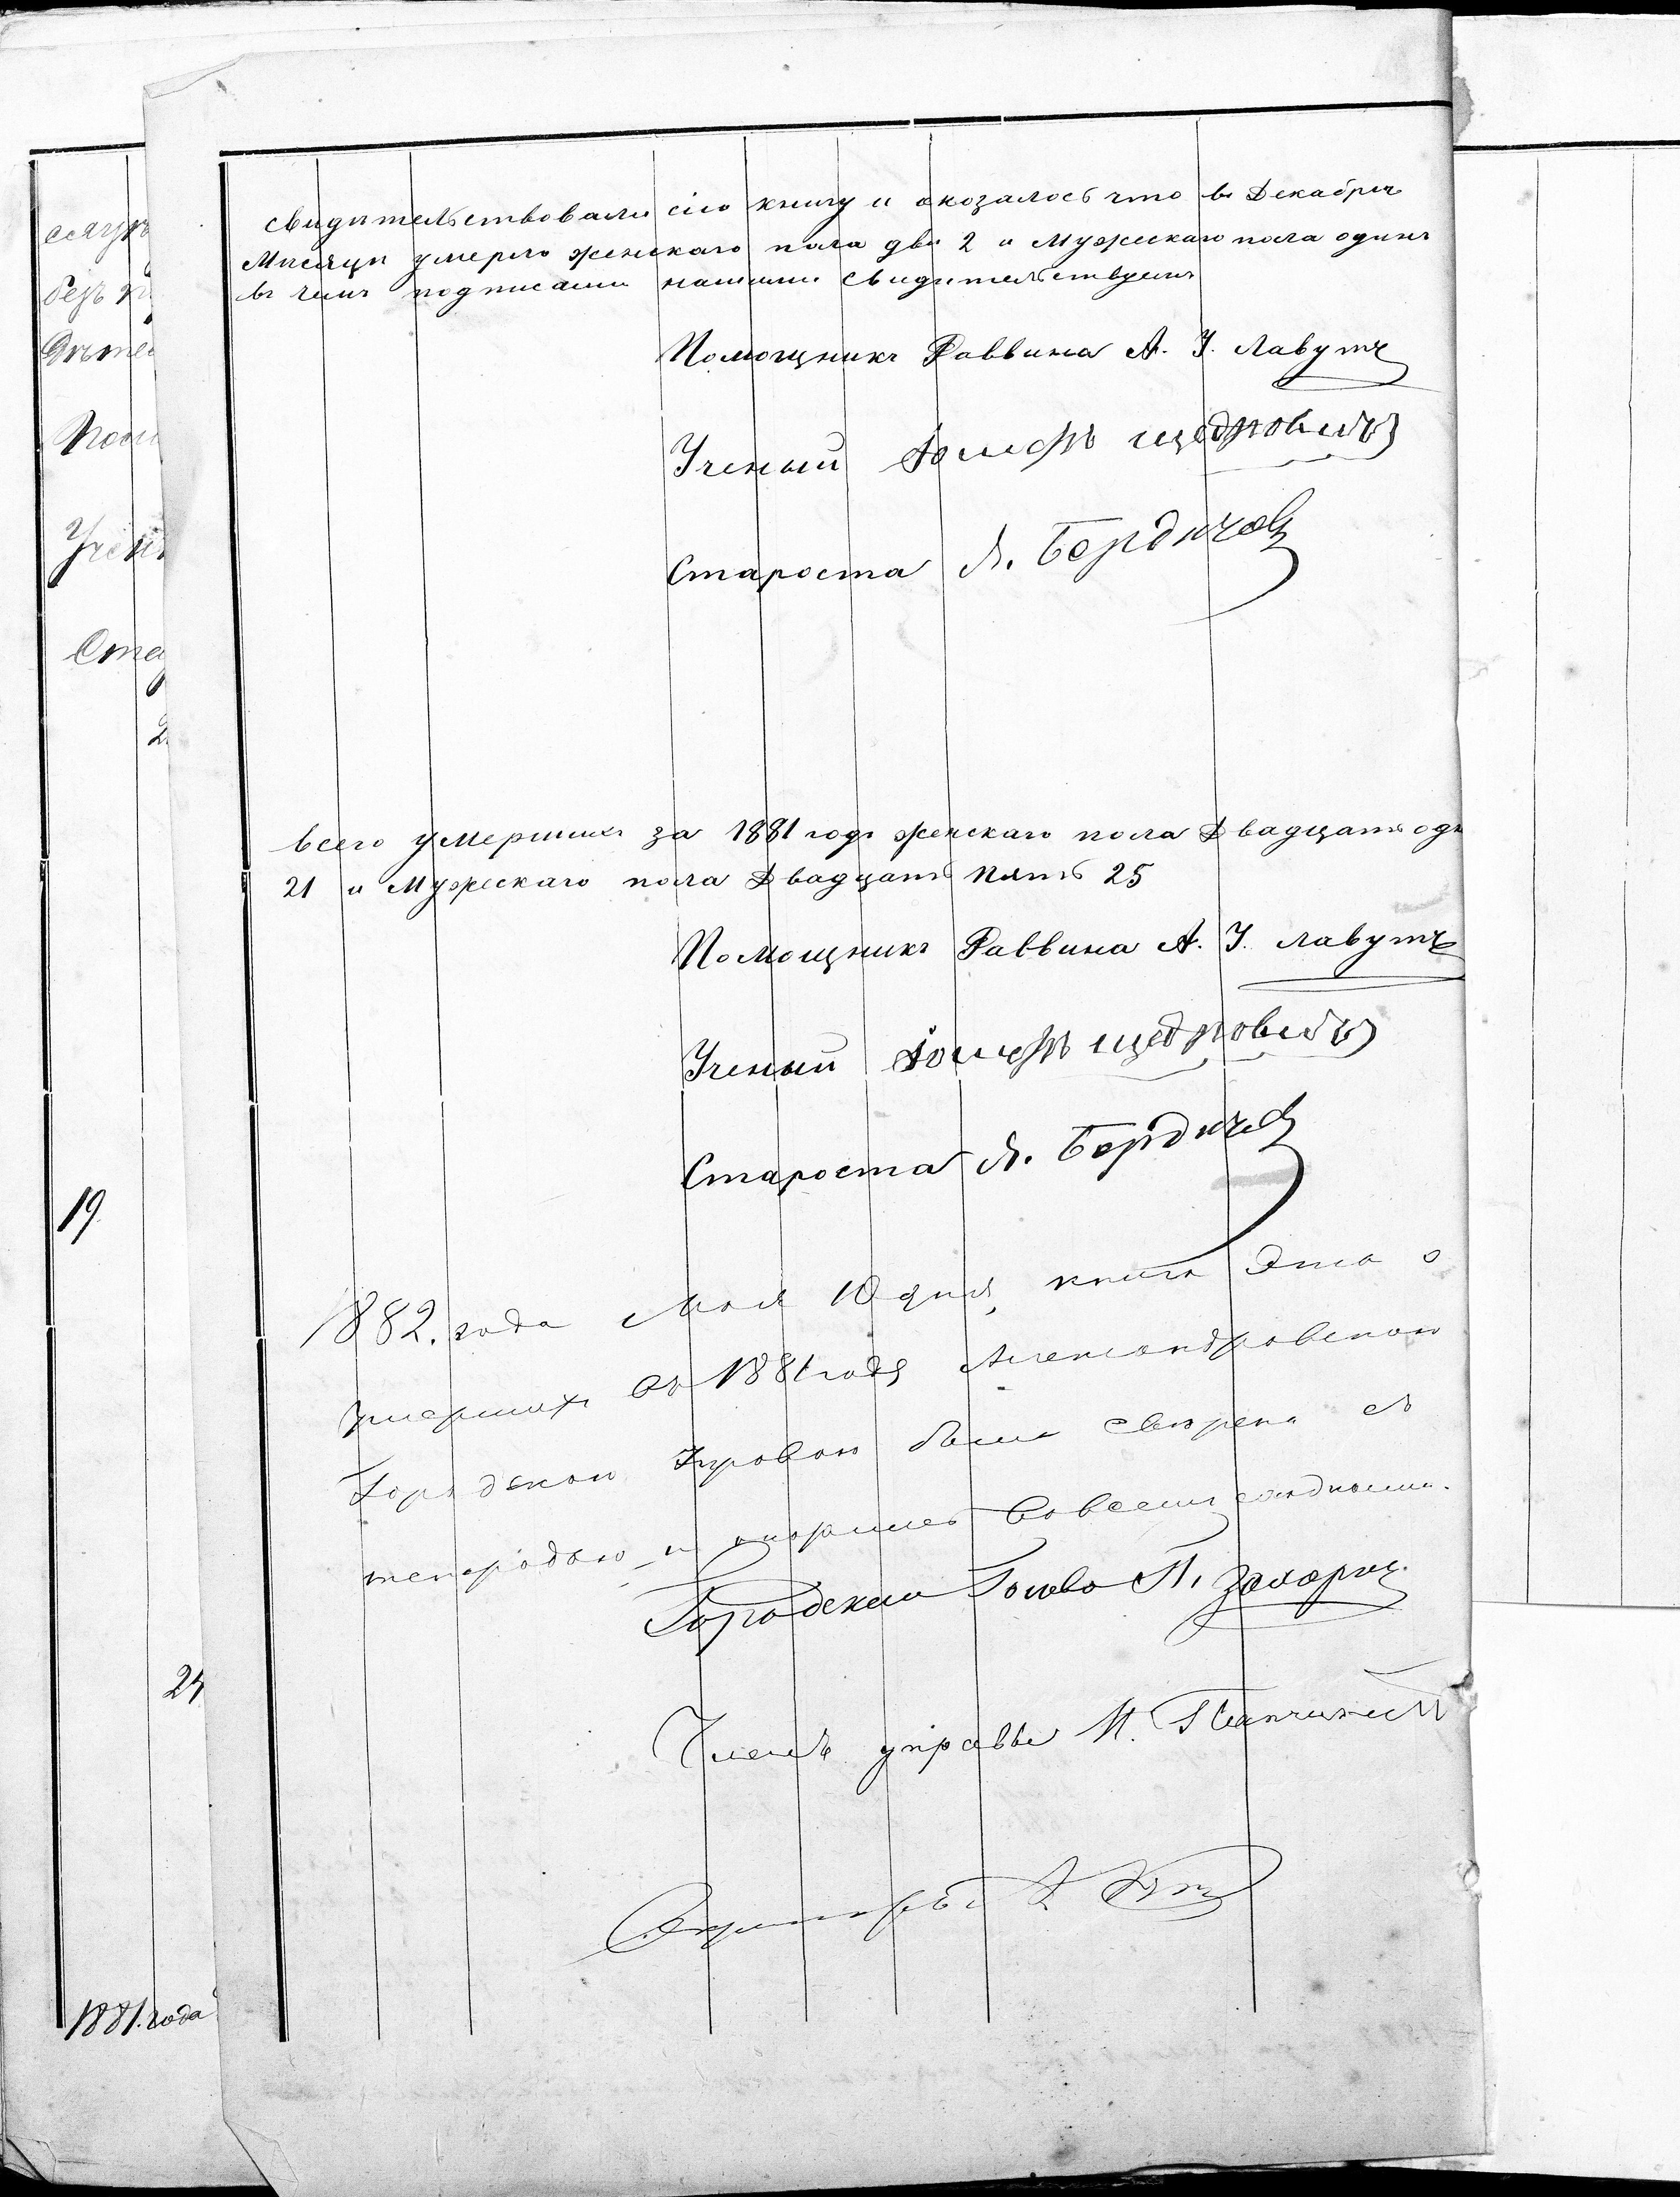 свидѣтельствовали сію книгу и окозалось что въ Декабрѣ
Мѣсяцѣ умерло женскаго пола двѣ 2 и Мужескаго пола одинъ
въ чемъ подписами нашими свидѣтельствуемъ
Помощникъ Раввина А. І. Лавутъ
Ученый Іосифъ Щедровицъ
Староста Л. Бердичев
Всего умершихъ за 1881 годъ женскаго пола Двадцать одн
21 и Мужескаго пола Двадцать Пять 25
Помощникъ Раввина А. І. Лавутъ
Ученый Іосифъ Щедровицъ
Староста Л. Бердичев
1882. года Мая 10 дня, книга Эта о
умершихъ въ 1881 годѣ Александровскою
Городскою Управою была свѣрена съ
тетрадью и оказалась во всемъ сходною.
Городской Голова П. Захарин
Членъ управы И.
Секретарь
19
24
1881. года